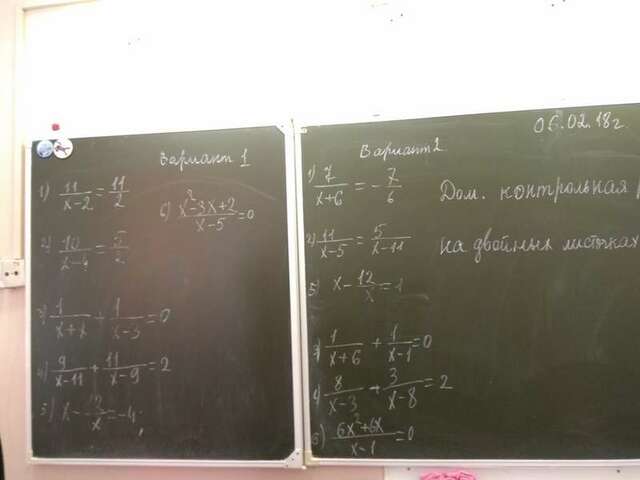 Вариант 1
1) 11/(x-2) = 11/2
6) (x²-3x+2)/(x-5) = 0
2) 10/(x-4) = 5/2
1/(x-3) = 0
4) 9/(x-11) + 11/(x-9) = 2
= -4;
Вариант 2
06.02.18г.
1) 7/(x+6) = -7/6
Дом. контрольная
2) 11/(x-5) = 5/(x-11)
на двойных листочках
5) x - 12/x = 1
3) 1/(x+6) + 1/(x-1) = 0
4) 8/(x-3) + 3/(x-8) = 2
6) (6x²+6x)/(x-1) = 0